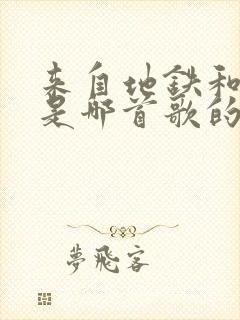 来自地鉄和
是哪首歌的
夢飛客